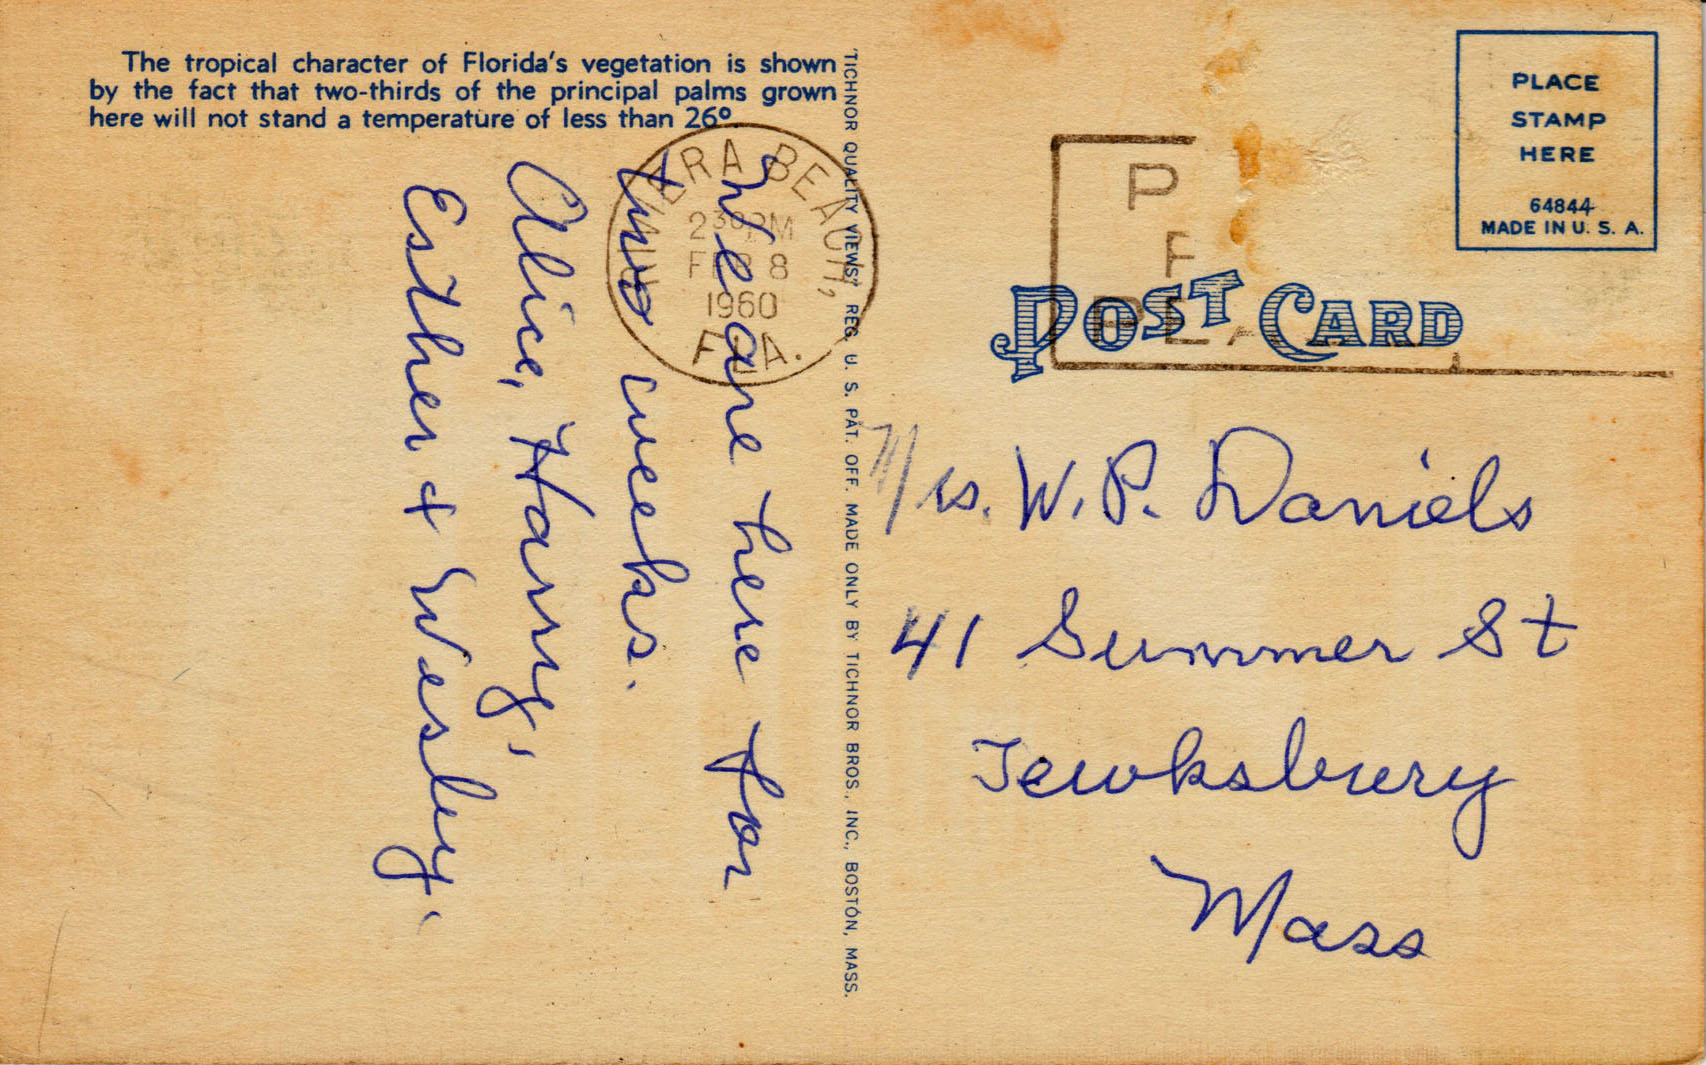 The tropical character of Florida's vegetation is shown
by the fact that two-thirds of the principal palms grown
here will not stand a temperature of less than 26°
We are here for
two weeks.
Alice, Harry,
Esther & Wesley.
BEACH,
2 30 PM
FEB 8
1960
FLA.
TICHNOR QUALITY VIEWS, REG. U. S. PAT. OFF. MADE ONLY BY TICHNOR BROS., INC., BOSTON, MASS.
PLACE
STAMP
HERE
64844
MADE IN U. S. A.
P
POST CARD
Mrs. W. P. Daniels
41 Summer St
Tewksbury
Mass